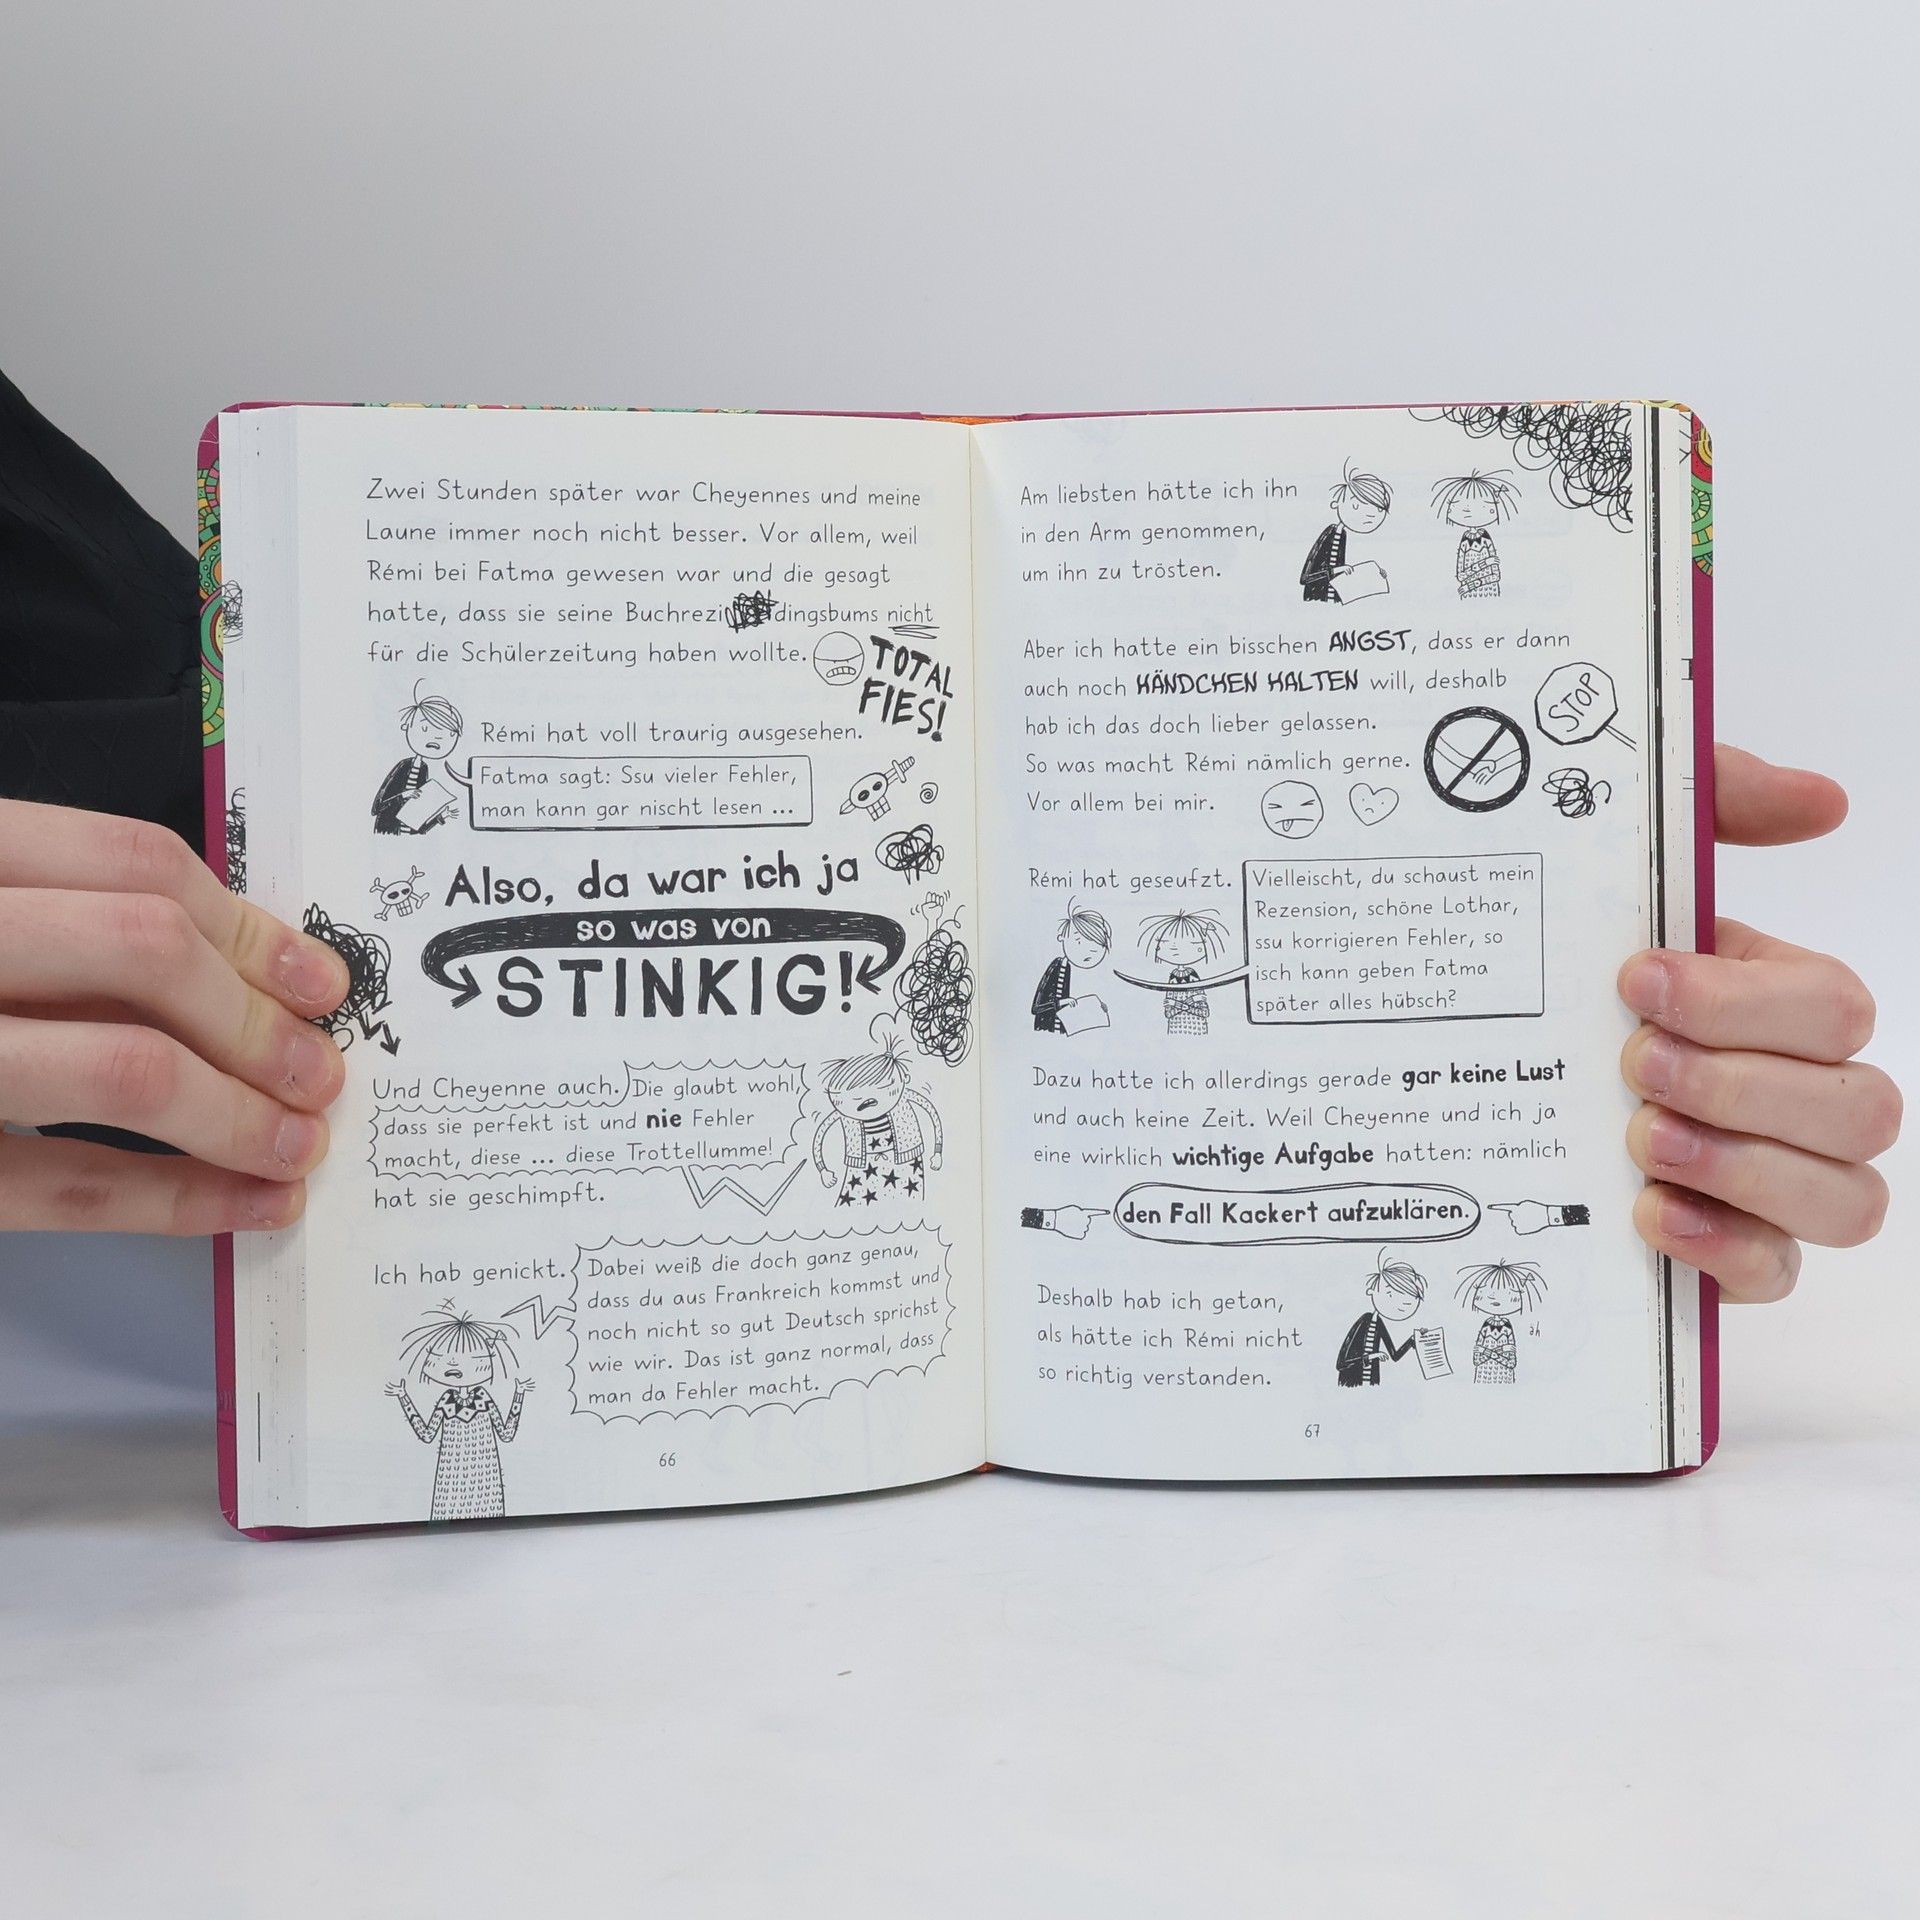 Zwei Stunden später war Cheyennes und meine
Laune immer noch nicht besser. Vor allem, weil
Rémi bei Fatma gewesen war und die gesagt
hatte, dass sie seine Buchrezi dingsbums nicht
für die Schülerzeitung haben wollte.
TOTAL
FIES!
Rémi hat voll traurig ausgesehen.
Fatma sagt: Ssu vieler Fehler,
man kann gar nischt lesen ...
Also, da war ich ja
so was von
STINKIG!
Und Cheyenne auch. Die glaubt wohl,
dass sie perfekt ist und nie Fehler
macht, diese ... diese Trottellumme!
hat sie geschimpft.
Ich hab genickt.
Dabei weiß die doch ganz genau,
dass du aus Frankreich kommst und
noch nicht so gut Deutsch sprichst
wie wir. Das ist ganz normal, dass
man da Fehler macht.
66
Am liebsten hätte ich ihn
in den Arm genommen,
um ihn zu trösten.
Aber ich hatte ein bisschen ANGST, dass er dann
auch noch HÄNDCHEN HALTEN will, deshalb
hab ich das doch lieber gelassen.
So was macht Rémi nämlich gerne.
Vor allem bei mir.
STOP
Rémi hat geseufzt.
Vielleischt, du schaust mein
Rezension, schöne Lothar,
ssu korrigieren Fehler, so
isch kann geben Fatma
später alles hübsch?
Dazu hatte ich allerdings gerade gar keine Lust
und auch keine Zeit. Weil Cheyenne und ich ja
eine wirklich wichtige Aufgabe hatten: nämlich
den Fall Kackert aufzuklären.
Deshalb hab ich getan,
als hätte ich Rémi nicht
so richtig verstanden.
äh
67